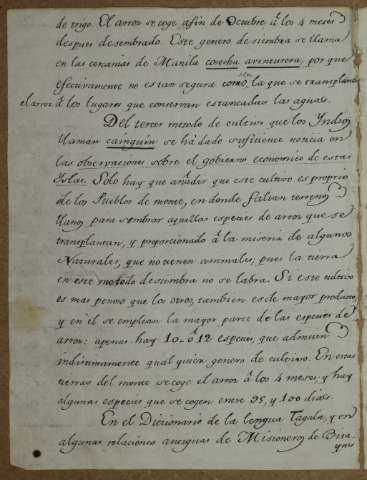 de trigo. El arros se coge afin de Octubre â los 4 meses
despues de sembrado. Este genero de siembra se llama
en las cercanias de Manila cosecha aventurera, por que
efectivamente no es tan segura como la que se transplanta
el arros â los lugares que conservan estancadas las aguas.
Del tercer metodo de cultivo que los Yndios
llaman cainguin se hâ dado suficiente noticia en
las observaciones sobre el gobierno economico de estas
Yslas. Solo hay que añadir que este cultivo es proprio
de los Pueblos de monte, en donde faltan terrenos
llanos para sembrar aquellas especies de arros que se
transplantan, y proporcionado â la miseria de algunos
Naturales, que no tienen animales, pues la tierra
en este metodo de siembra no se labra. Si este cultivo
es mas penoso que los otros, tambien es de mayor producto
y en el se emplean la mayor parte de las especies de
arros: apenas hay 10. ô 12 especies, que admitan
indistintamente qual quiera genero de cultivo. En estas
tierras del monte se coge el arros â los 4 meses, y hay
algunas especies que se cogen entre 95, y 100 dias.
En el Diccionario de la lengua Tagala, y en
algunas relaciones antiguas de Misioneros de Bisa
yas